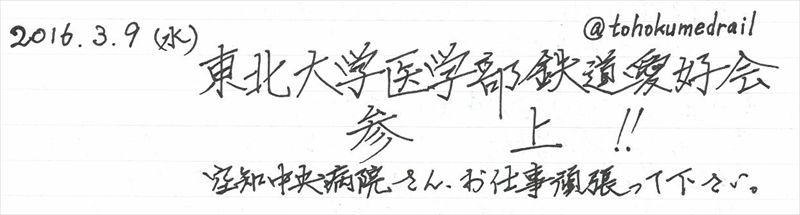 2016.3.9(水)
@tohokumedrail
東北大学医学部鉄道愛好会
参上!!
空知中央病院さん、お仕事頑張って下さい。